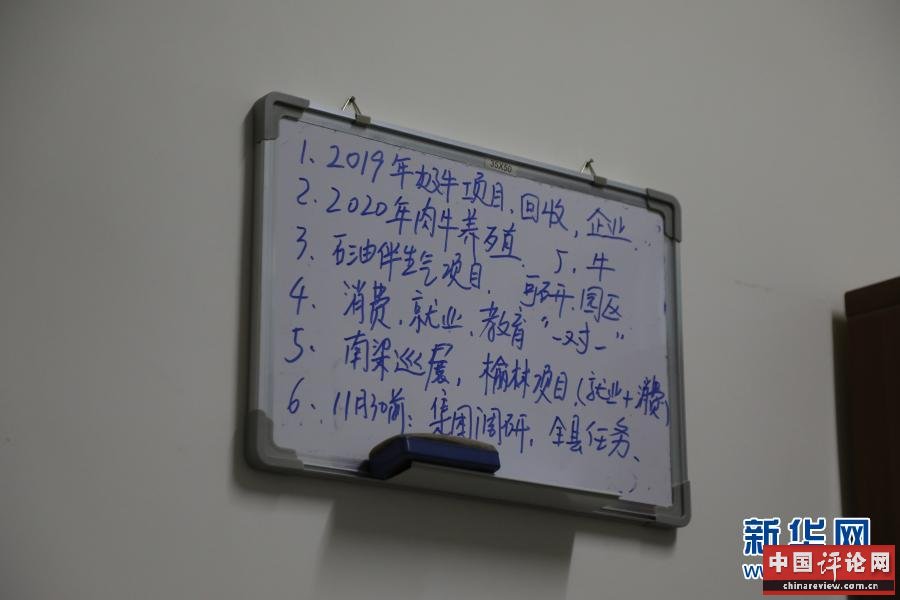 35X50
1、2019年牛项目、回收,企业
2、2020年肉牛养殖、厂、牛
3、石油伴生气项目、可研、园区
4、消费、就业、教育“一对一”
5、南梁巡展,榆林项目、(就业+消费)
6、11月30前:集团调研,全县任务、
新华网
www
中国评论网
chinareview.com.cn